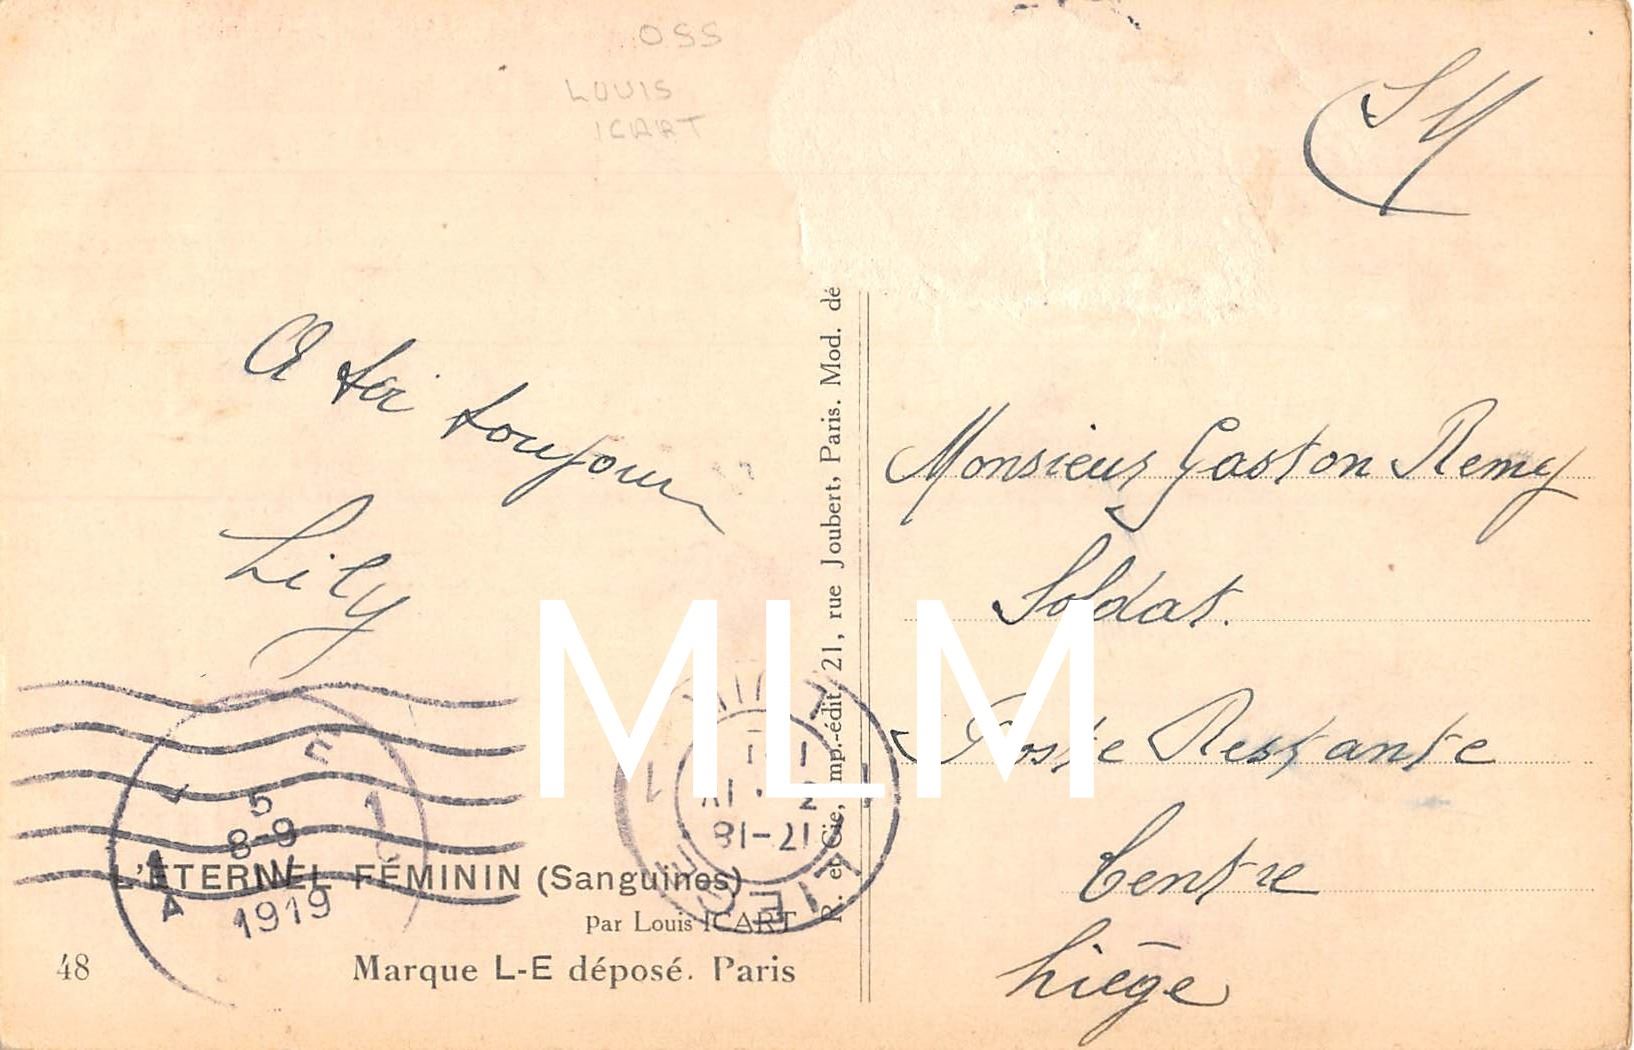 OSS
LOUIS
ICART
SM
A toi toujours
Lily
R. et Cie, imp.-édit. 21, rue Joubert, Paris. Mod. dé
Monsieur Gaston Remy
Soldat.
Poste Restante
Centre
Liége
MLM
5
8-9
IV
1919
17-18
LIEGE
L'ÉTERNEL FÉMININ (Sanguines)
par Louis ICART
48
Marque L-E déposé. Paris